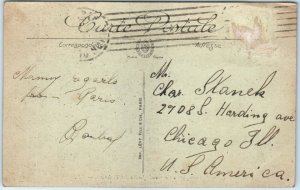 Carte Postale
Correspondance
Adresse
Many regards
from Paris.
Mr.
Char. Stanek
2708 S. Harding ave
Chicago Ill.
U. S. America.